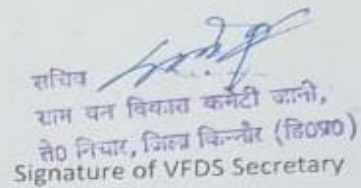 सचिव
ग्राम वन विकास कमेटी जानी,
ते0 निचार, जिला किन्नौर (हि0प्र0)
Signature of VFDS Secretary